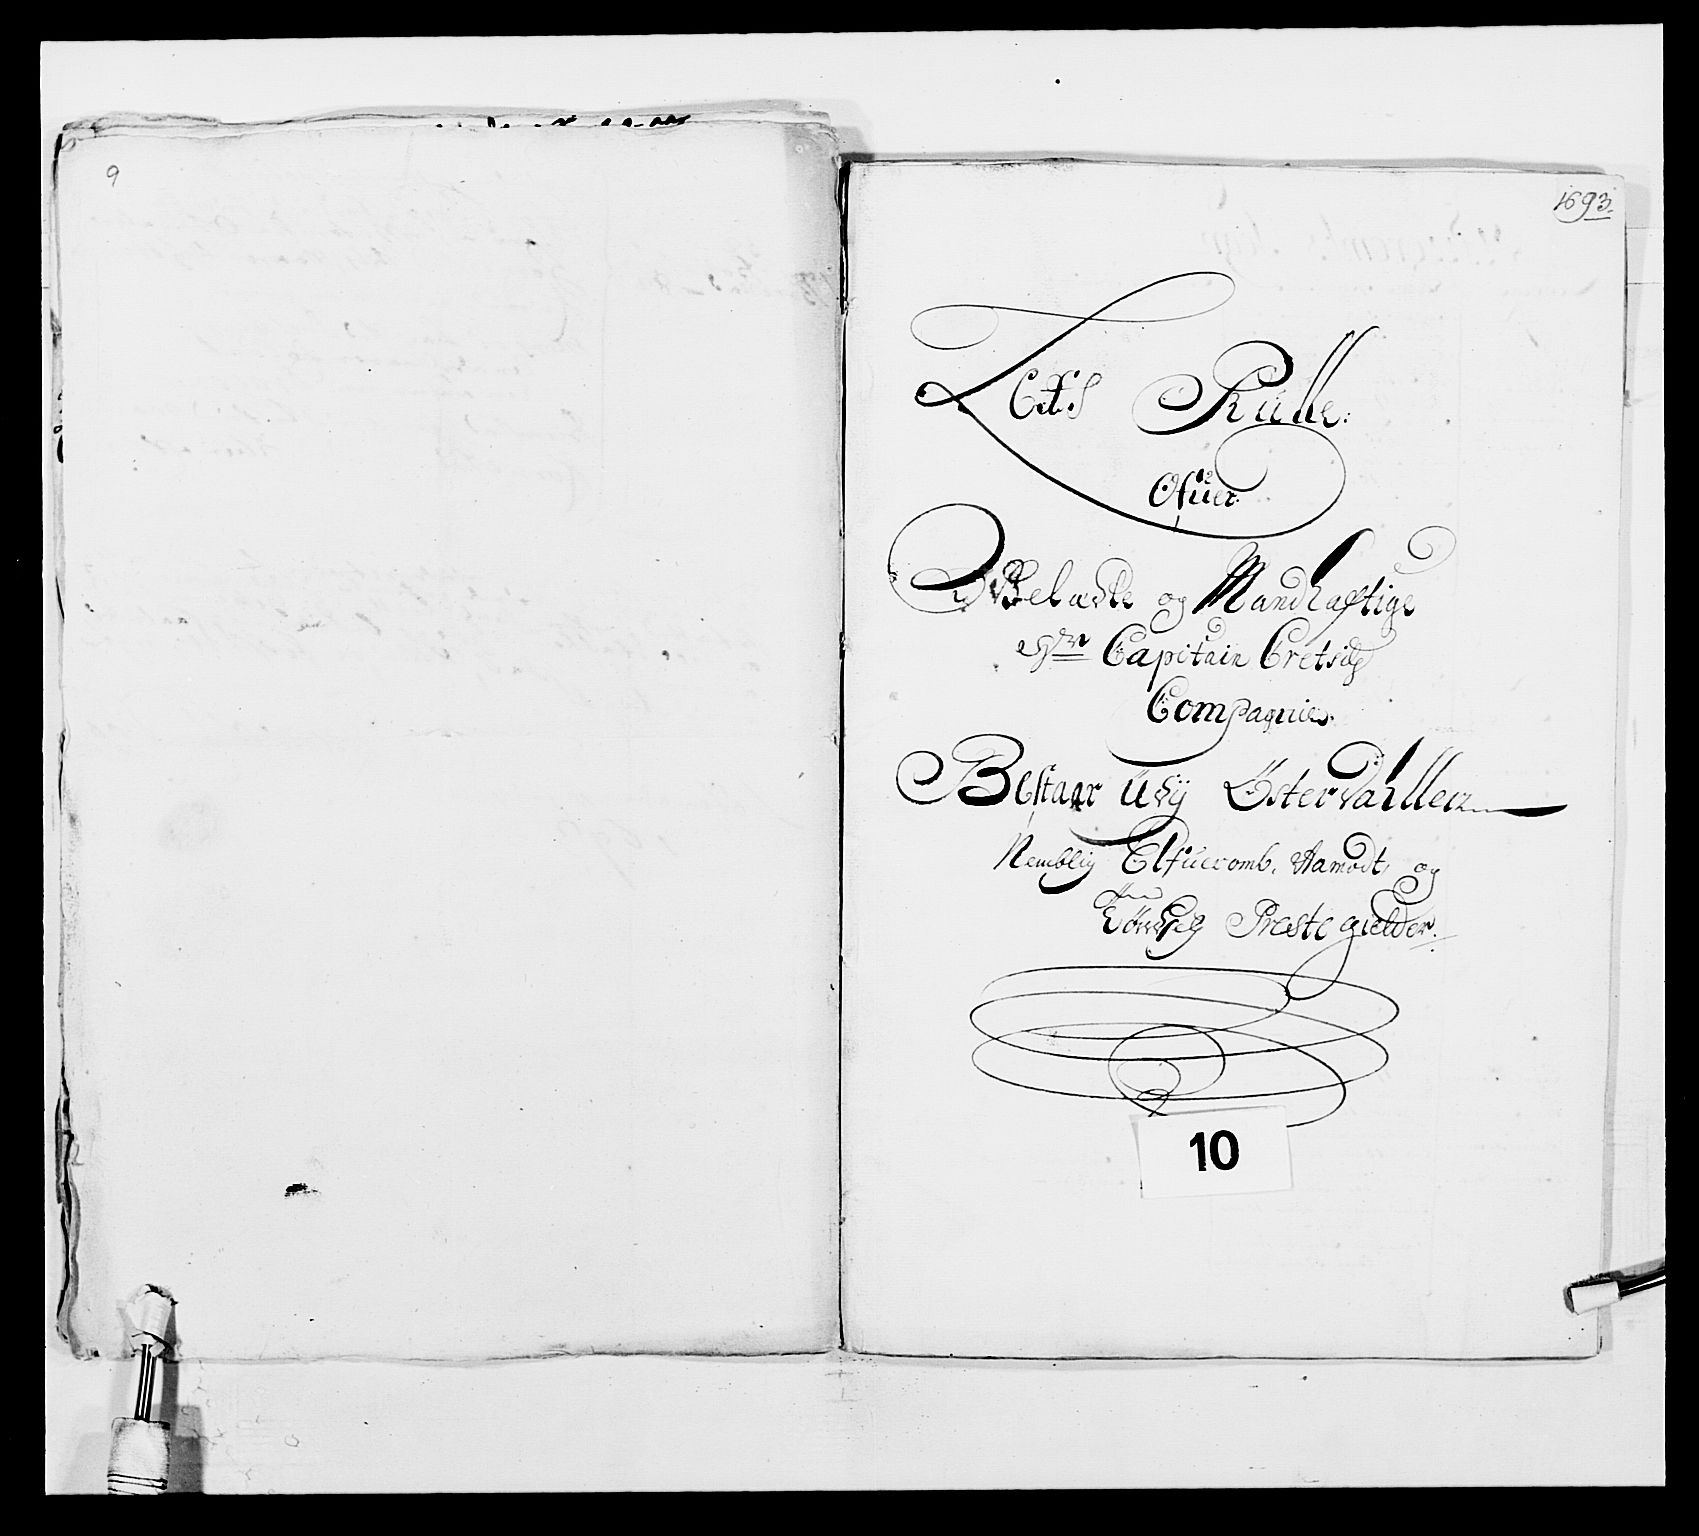 9
1693.
Lægs Rulle:
Ofuer
Velædle og Mandhaftige
Hr. Capitain Cretsiß
Compagnies.
Bestaar udj Østerdallen
Nemblig Elfueromb, Aamodt, og
Preste gielder.
10